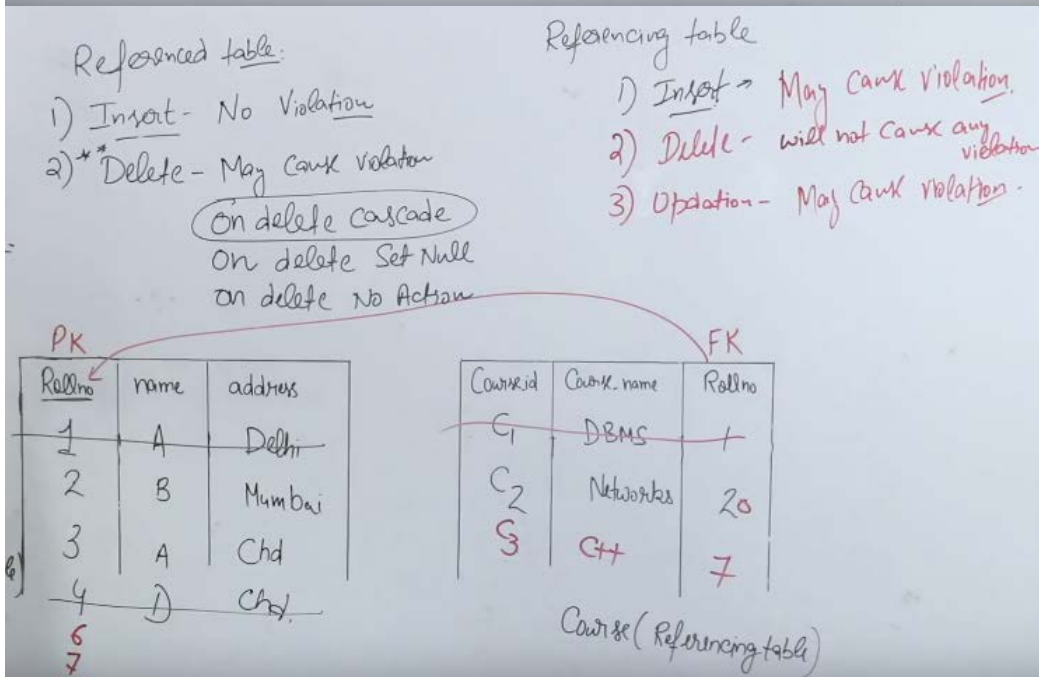 Referenced table:
1) Insert - No Violation
2) ** Delete - May cause violation
on delete cascade
on delete Set Null
on delete No Action
Referencing table
1) Insert → May cause violation.
2) Delete - will not cause any violation
3) Updation - May cause violation.
PK
Rollno name address
1 A Delhi
2 B Mumbai
3 A Chd
4 D Chd.
6
7
FK
Course.id Course.name Rollno
C1 DBMS 1
C2 Networks 20
C3 C++ 7
Course (Referencing table)